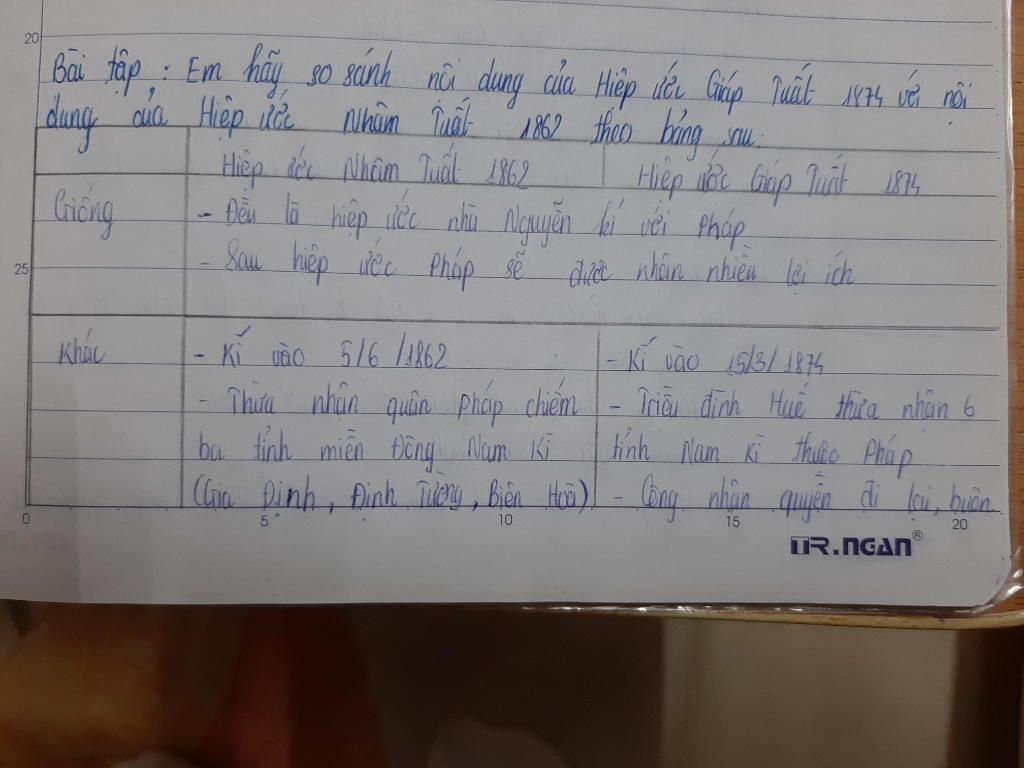 20
Bài tập : Em hãy so sánh nội dung của Hiệp ước Giáp Tuất 1874 với nội
dung của Hiệp ước Nhâm Tuất 1862 theo bảng sau:
Hiệp ước Nhâm Tuất 1862 Hiệp ước Giáp Tuất 1874
Giống - Đều là hiệp ước nhà Nguyễn kí với Pháp
25 - Sau hiệp ước Pháp sẽ được nhận nhiều lợi ích
Khác - Kí vào 5/6/1862 - Kí vào 15/3/1874
- Thừa nhận quân Pháp chiếm - Triều đình Huế thừa nhận 6
ba tỉnh miền Đông Nam Kì tỉnh Nam Kì thuộc Pháp
(Gia Định, Định Tường, Biên Hoà) - Công nhận quyền đi lại, buôn
0 5 10 15 20
TR.NGAN®